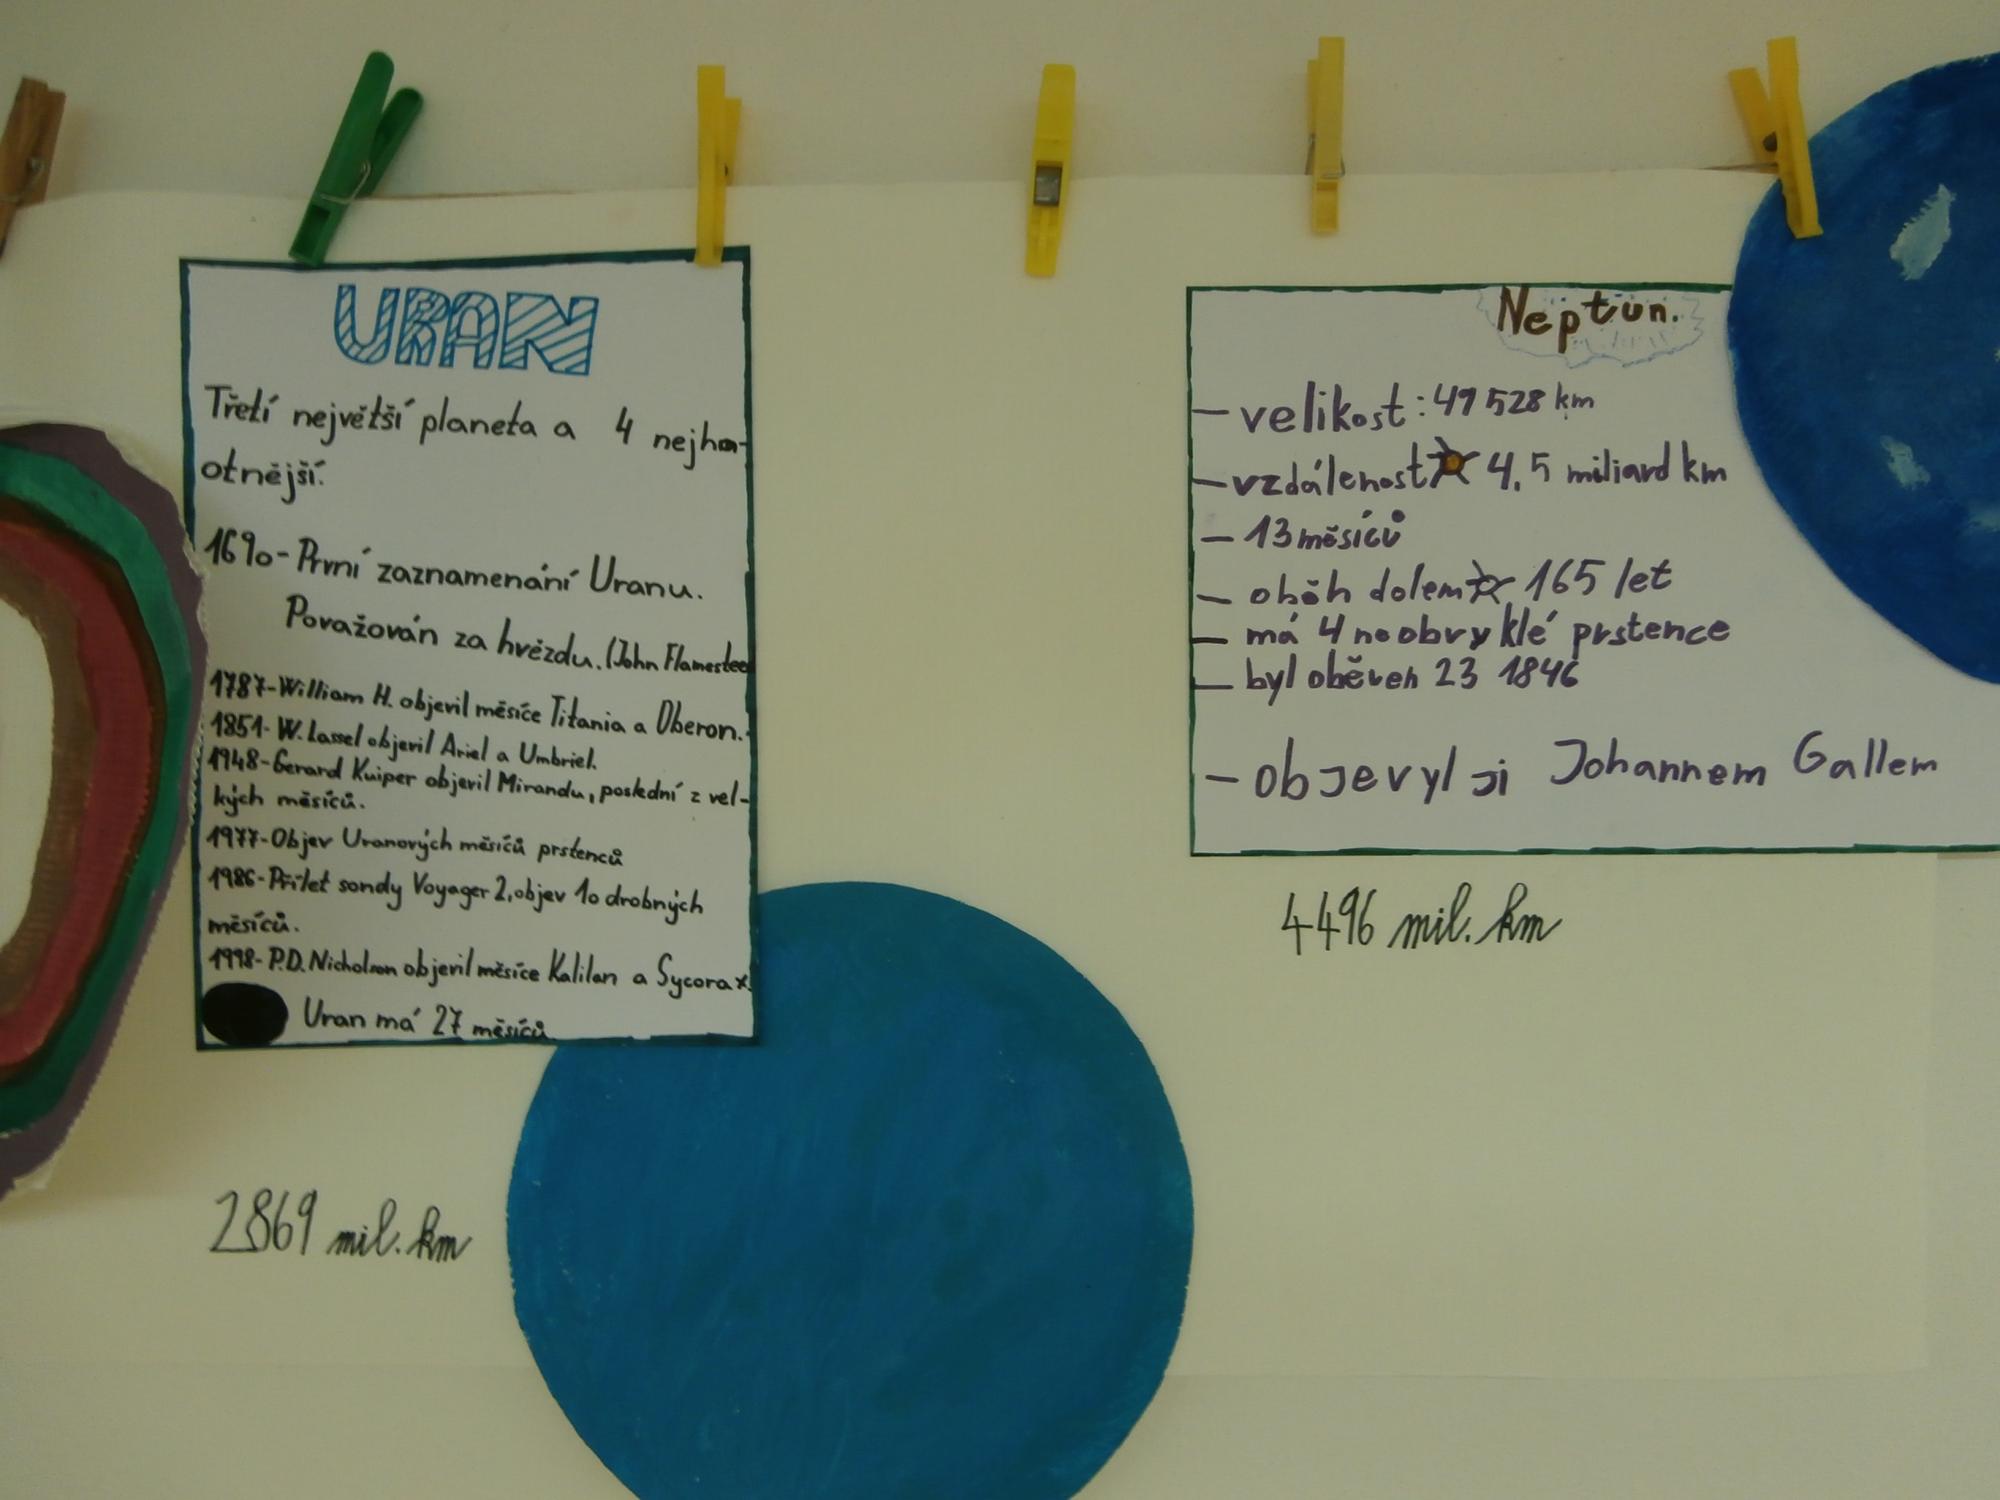 URAN
Třetí největší planeta a 4 nejhm-
otnější.
1690-První zaznamenání Uranu.
Považován za hvězdu. (John Flamsteed
1787-William H. objevil měsíce Titania a Oberon.
1851-W. Lassel objevil Ariel a Umbriel.
1948-Gerard Kuiper objevil Mirandu, poslední z vel-
kých měsíců.
1977-Objev Uranových měsíců prstenců
1986-Přílet sondy Voyager 2, objev 10 drobných
měsíců.
1998-P.D. Nicholson objevil měsíce Kalilan a Sycorax.
Uran má 27 měsíců
2869 mil. km
Neptun.
- velikost: 49 528 km
- vzdálenost 4,5 miliard km
- 13 měsíců
- oběh dolem 165 let
- má 4 neobvyklé prstence
- byl oběven 23 1846
- objevyl ji Johannem Gallem
4496 mil. km